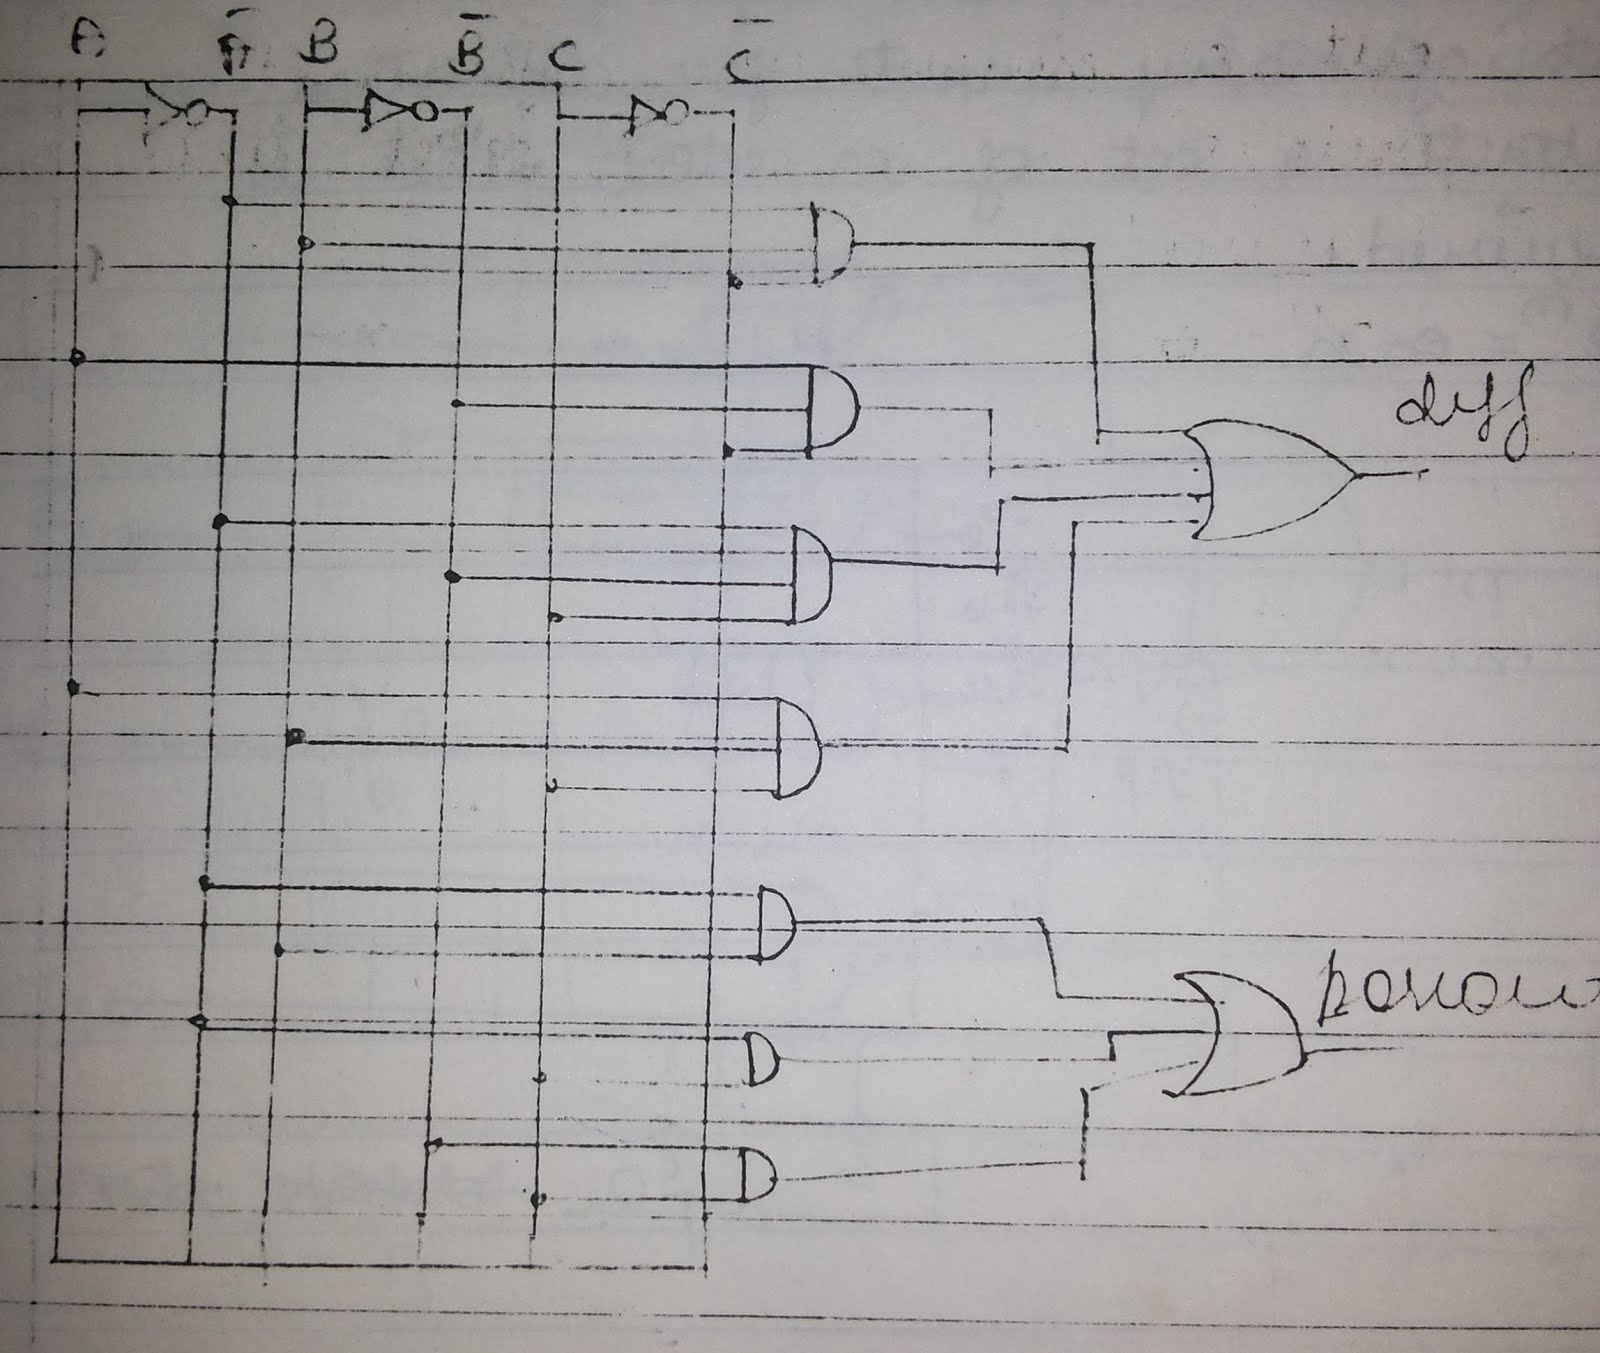 A Ā B B̄ C C̄
diff
borrow